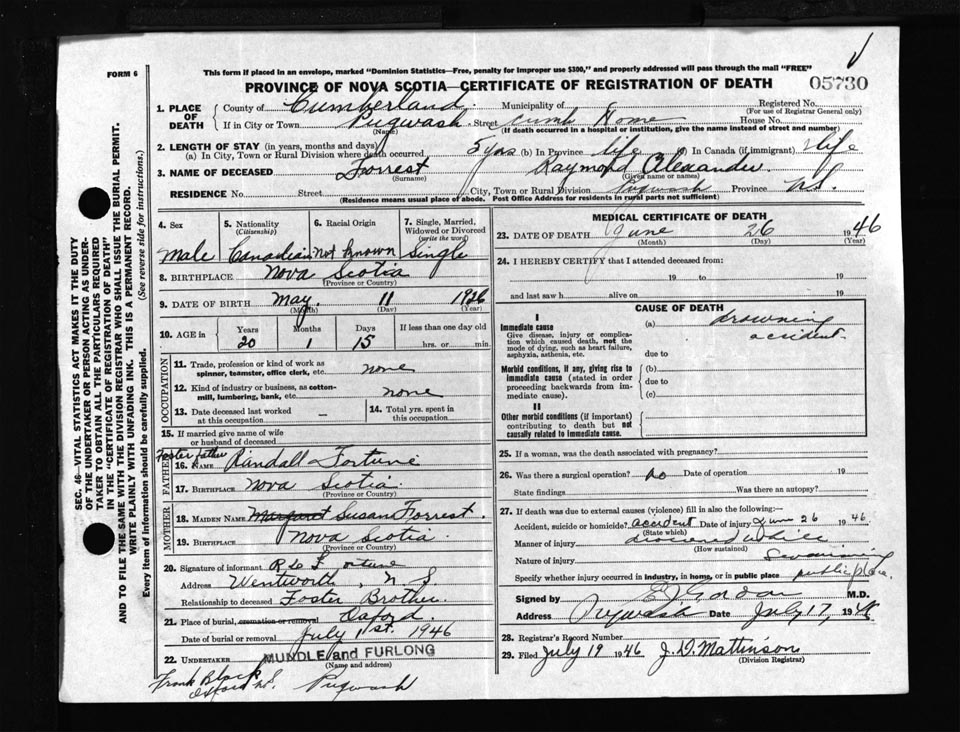 FORM 6
This form if placed in an envelope, marked "Dominion Statistics—Free, penalty for improper use $300," and properly addressed will pass through the mail "FREE"
PROVINCE OF NOVA SCOTIA—CERTIFICATE OF REGISTRATION OF DEATH
05730
1. PLACE OF DEATH
County of Cumberland Municipality of Registered No.
(For use of Registrar General only)
If in City or Town Pugwash Street Cumb Home House No.
(Name) (If death occurred in a hospital or institution, give the name instead of street and number)
2. LENGTH OF STAY (in years, months and days)
(a) In City, Town or Rural Division where death occurred 5 yrs (b) In Province life (c) In Canada (if immigrant) life
3. NAME OF DECEASED Forrest Raymond Alexander
(Surname) (Given name or names)
RESIDENCE No. Street City, Town or Rural Division Pugwash Province N.S.
(Residence means usual place of abode. Post Office Address for residents in rural parts not sufficient)
SEC. 46—VITAL STATISTICS ACT MAKES IT THE DUTY
OF THE UNDERTAKER OR PERSON ACTING AS UNDER-
TAKER TO OBTAIN ALL THE PARTICULARS REQUIRED
IN THE "CERTIFICATE OF REGISTRATION OF DEATH"
AND TO FILE THE SAME WITH THE DIVISION REGISTRAR WHO SHALL ISSUE THE BURIAL PERMIT.
WRITE PLAINLY WITH UNFADING INK. THIS IS A PERMANENT RECORD.
Every item of information should be carefully supplied. (See reverse side for instructions.)
4. Sex
Male
5. Nationality
(Citizenship)
Canadian
6. Racial Origin
Not Known
7. Single, Married,
Widowed or Divorced
(write the word)
Single
8. BIRTHPLACE Nova Scotia
(Province or Country)
9. DATE OF BIRTH May 11 1926
(Month) (Day) (Year)
10. AGE in Years Months Days If less than one day old
20 1 15 hrs. or min.
OCCUPATION
11. Trade, profession or kind of work as
spinner, teamster, office clerk, etc. none
12. Kind of industry or business, as cotton-
mill, lumbering, bank, etc. none
13. Date deceased last worked
at this occupation —
14. Total yrs. spent in
this occupation
15. If married give name of wife
or husband of deceased
Foster Father
FATHER
16. NAME Randall Fortune
17. BIRTHPLACE Nova Scotia
(Province or Country)
MOTHER
18. MAIDEN NAME Margaret Susan Forrest
19. BIRTHPLACE Nova Scotia
(Province or Country)
20. Signature of informant Fortune
Address Wentworth, N.S
Relationship to deceased Foster Brother
21. Place of burial, cremation or removal Oxford
Date of burial or removal July 1st. 1946
22. UNDERTAKER MUNDLE and FURLONG
(Name and address)
Frank Black
Oxford N.S. Pugwash
MEDICAL CERTIFICATE OF DEATH
23. DATE OF DEATH June 26 1946
(Month) (Day) (Year)
24. I HEREBY CERTIFY that I attended deceased from:
19 to 19
and last saw h alive on 19
CAUSE OF DEATH
I
Immediate cause
Give disease, injury or complica-
tion which caused death, not the
mode of dying, such as heart failure,
asphyxia, asthenia, etc.
(a) drowning
accident
due to
Morbid conditions, if any, giving rise to
immediate cause (stated in order
proceeding backwards from im-
mediate cause).
(b)
due to
(c)
II
Other morbid conditions (if important)
contributing to death but not
causally related to immediate cause.
25. If a woman, was the death associated with pregnancy?
26. Was there a surgical operation? no Date of operation 19
State findings Was there an autopsy?
27. If death was due to external causes (violence) fill in also the following:—
Accident, suicide or homicide? accident Date of injury June 26 1946
(State which)
Manner of injury drowned while
(How sustained)
Nature of injury
Specify whether injury occurred in industry, in home, or in public place public place
Signed by Gordon M.D.
Address Pugwash Date July 17, 1946
28. Registrar's Record Number
29. Filed July 19 1946 J. D. Mattinson
(Division Registrar)